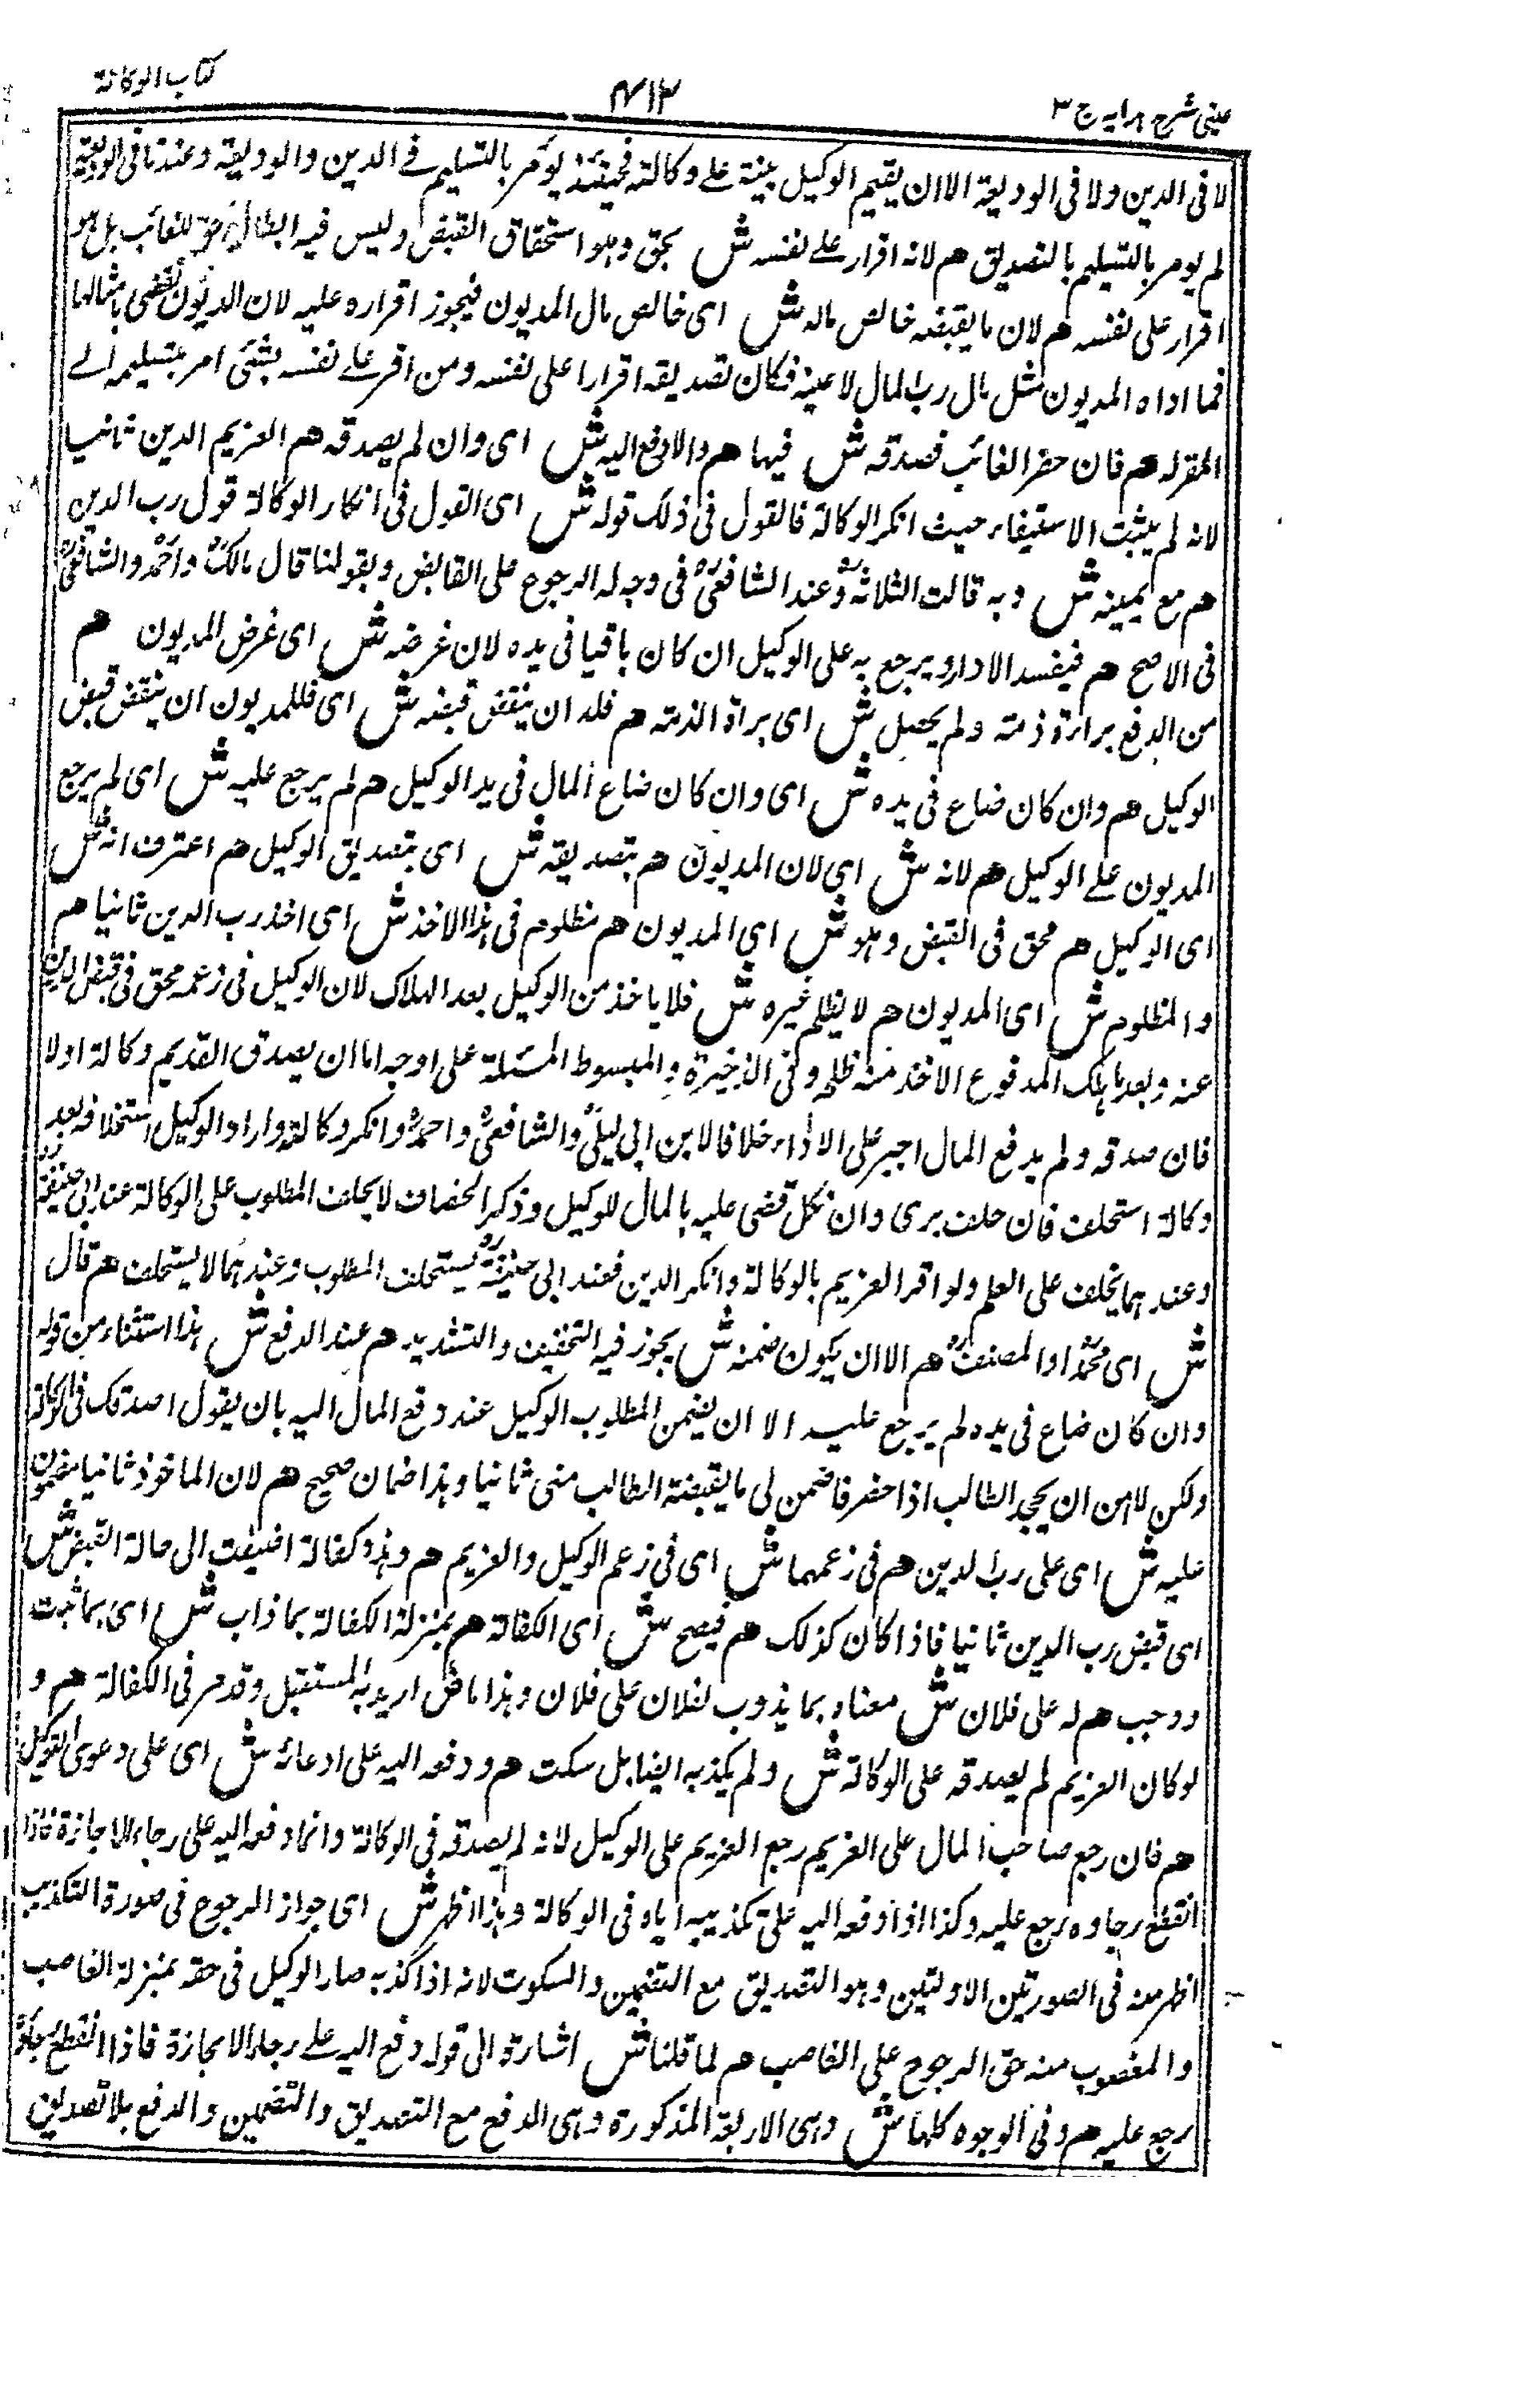 عینی شرح ہدایہ ج ۳
۷۱۳
کتاب الوکالة
لا فى الدين ولا فى الوديعة الا ان يقيم الوكيل بينة على وكالته فحينئذ يؤمر بالتسليم فے الدين والوديعة وعندنا فى الوديعة
لم يومر بالتسليم بالتصديق هم لانه اقرار على نفسه ش بحق وهو استحقاق القبض وليس فيه ابطال حق للغائب بل هو
اقرار على نفسه هم لان ما يقبضه خالص ماله ش اى خالص مال المديون فيجوز اقراره عليه لان الديون تقضى بامثالها
فما اداه المديون مثل مال رب المال لا عينه فكان تصديقه اقرارا على نفسه ومن اقر على نفسه بشئى امر بتسليمه الے
المقر له هم فان حضر الغائب فصدقه ش فيها هم والا دفع اليه ش اى وان لم يصدقه هم الغريم الدين ثانيا
لانه لم يثبت الاستيفاء حيث انكر الوكالة فالقول فى ذلك قوله ش اى القول فى انكار الوكالة قول رب الدين
هم مع يمينه ش وبه قالت الثلاثة وعند الشافعى فى وجه له الرجوع على القابض وبقولنا قال مالك واحمد والشافعى
فى الاصح هم فيفسد الاداء ويرجع به على الوكيل ان كان باقيا فى يده لان غرضه ش اى غرض المديون هم
من الدفع براءة ذمته ولم يحصل ش اى براة الذمته هم فله ان ينقض قبضه ش اى فللمديون ان ينقض قبض
الوكيل هم وان كان ضاع فى يده ش اى وان كان ضاع المال فى يد الوكيل هم لم يرجع عليه ش اى لم يرجع
المديون علے الوكيل هم لانه ش اى لان المديون هم بتصديقه ش اى بتصديق الوكيل هم اعترف انه ش
اى الوكيل هم محق فى القبض وهو ش اى المديون هم مظلوم فى هذا الاخذ ش اى اخذ رب الدين ثانيا هم
والمظلوم ش اى المديون هم لا يظلم غيره ش فلا ياخذ من الوكيل بعد الهلاك لان الوكيل فى زعمه محق فى قبض الدين
عنه وبعد ما هلك المدفوع الاخذ منه ظلم وفى الذخيرة والمبسوط المسئلة على اوجه اما ان يصدق الغريم وكالته اولا
فان صدقه ولم يدفع المال اجبر على الاداء خلافا لابن ابى ليلى والشافعى واحمد وانكر وكالته واراد الوكيل استحلافه بعد
وكالة استحلف فان حلف برى وان نكل قضى عليه بالمال للوكيل وذكر الخصاف لا يحلف المطلوب على الوكالة عند ابى حنيفة
وعندهما يحلف على العلم ولو اقر الغريم بالوكالة وانكر الدين فعند ابى حنيفة يستحلف المطلوب وعندهما لا يستحلف هم قال
ش اى محمد او المصنف هم الا ان يكون ضمنه ش يجوز فيه التخفيف والتشديد هم عند الدفع ش هذا استثناء من قوله
وان كان ضاع فى يده لم يرجع عليه الا ان يضمن المطلوب الوكيل عند دفع المال اليه بان يقول اصدقك فى الوكالة
ولكن لا امن ان يجحد الطالب اذا حضر فاضمن لى ما يقبضه الطالب منى ثانيا وهذا ضمان صحيح هم لان الماخوذ ثانيا مضمون
عليه ش اى على رب الدين هم فى زعمهما ش اى فى زعم الوكيل والغريم هم وهذه كفالة اضيفت الى حالة القبض ش
اى قبض رب الدين ثانيا فاذا كان كذلك هم فيصح ش اى الكفالة هم بمنزلة الكفالة بما ذاب ش اى بما ثبت
ووجب هم له على فلان ش معناه بما يذوب لفلان على فلان وهذا ماض اريد به المستقبل وقد مر فى الكفالة هم و
لو كان الغريم لم يصدقه على الوكالة ش ولم يكذبه ايضا بل سكت هم ودفعه اليه على ادعائه ش اى على دعوى الوكيل
هم فان رجع صاحب المال على الغريم رجع الغريم على الوكيل لانه لم يصدقه فى الوكالة وانما دفعه اليه على رجاء الاجازة فاذا
انقطع رجاوه رجع عليه وكذا اذا دفعه اليه على تكذيبه اياه فى الوكالة وهذا اظهر ش اى جواز الرجوع فى صورة التكذيب
اظهر منه فى الصورتين الاوليين وهو التصديق مع التضمين والسكوت لانه اذا كذبه صار الوكيل فى حقه بمنزلة الغاصب
والمغصوب منه حق الرجوع على الغاصب هم لما قلنا ش اشارة الى قوله دفع اليه علے رجاء الاجازة فاذا انقطع رجاؤه
رجع عليه هم وفى الوجوه كلها ش وهى الاربعة المذكورة وهى الدفع مع التصديق والتضمين والدفع بلا تصديق